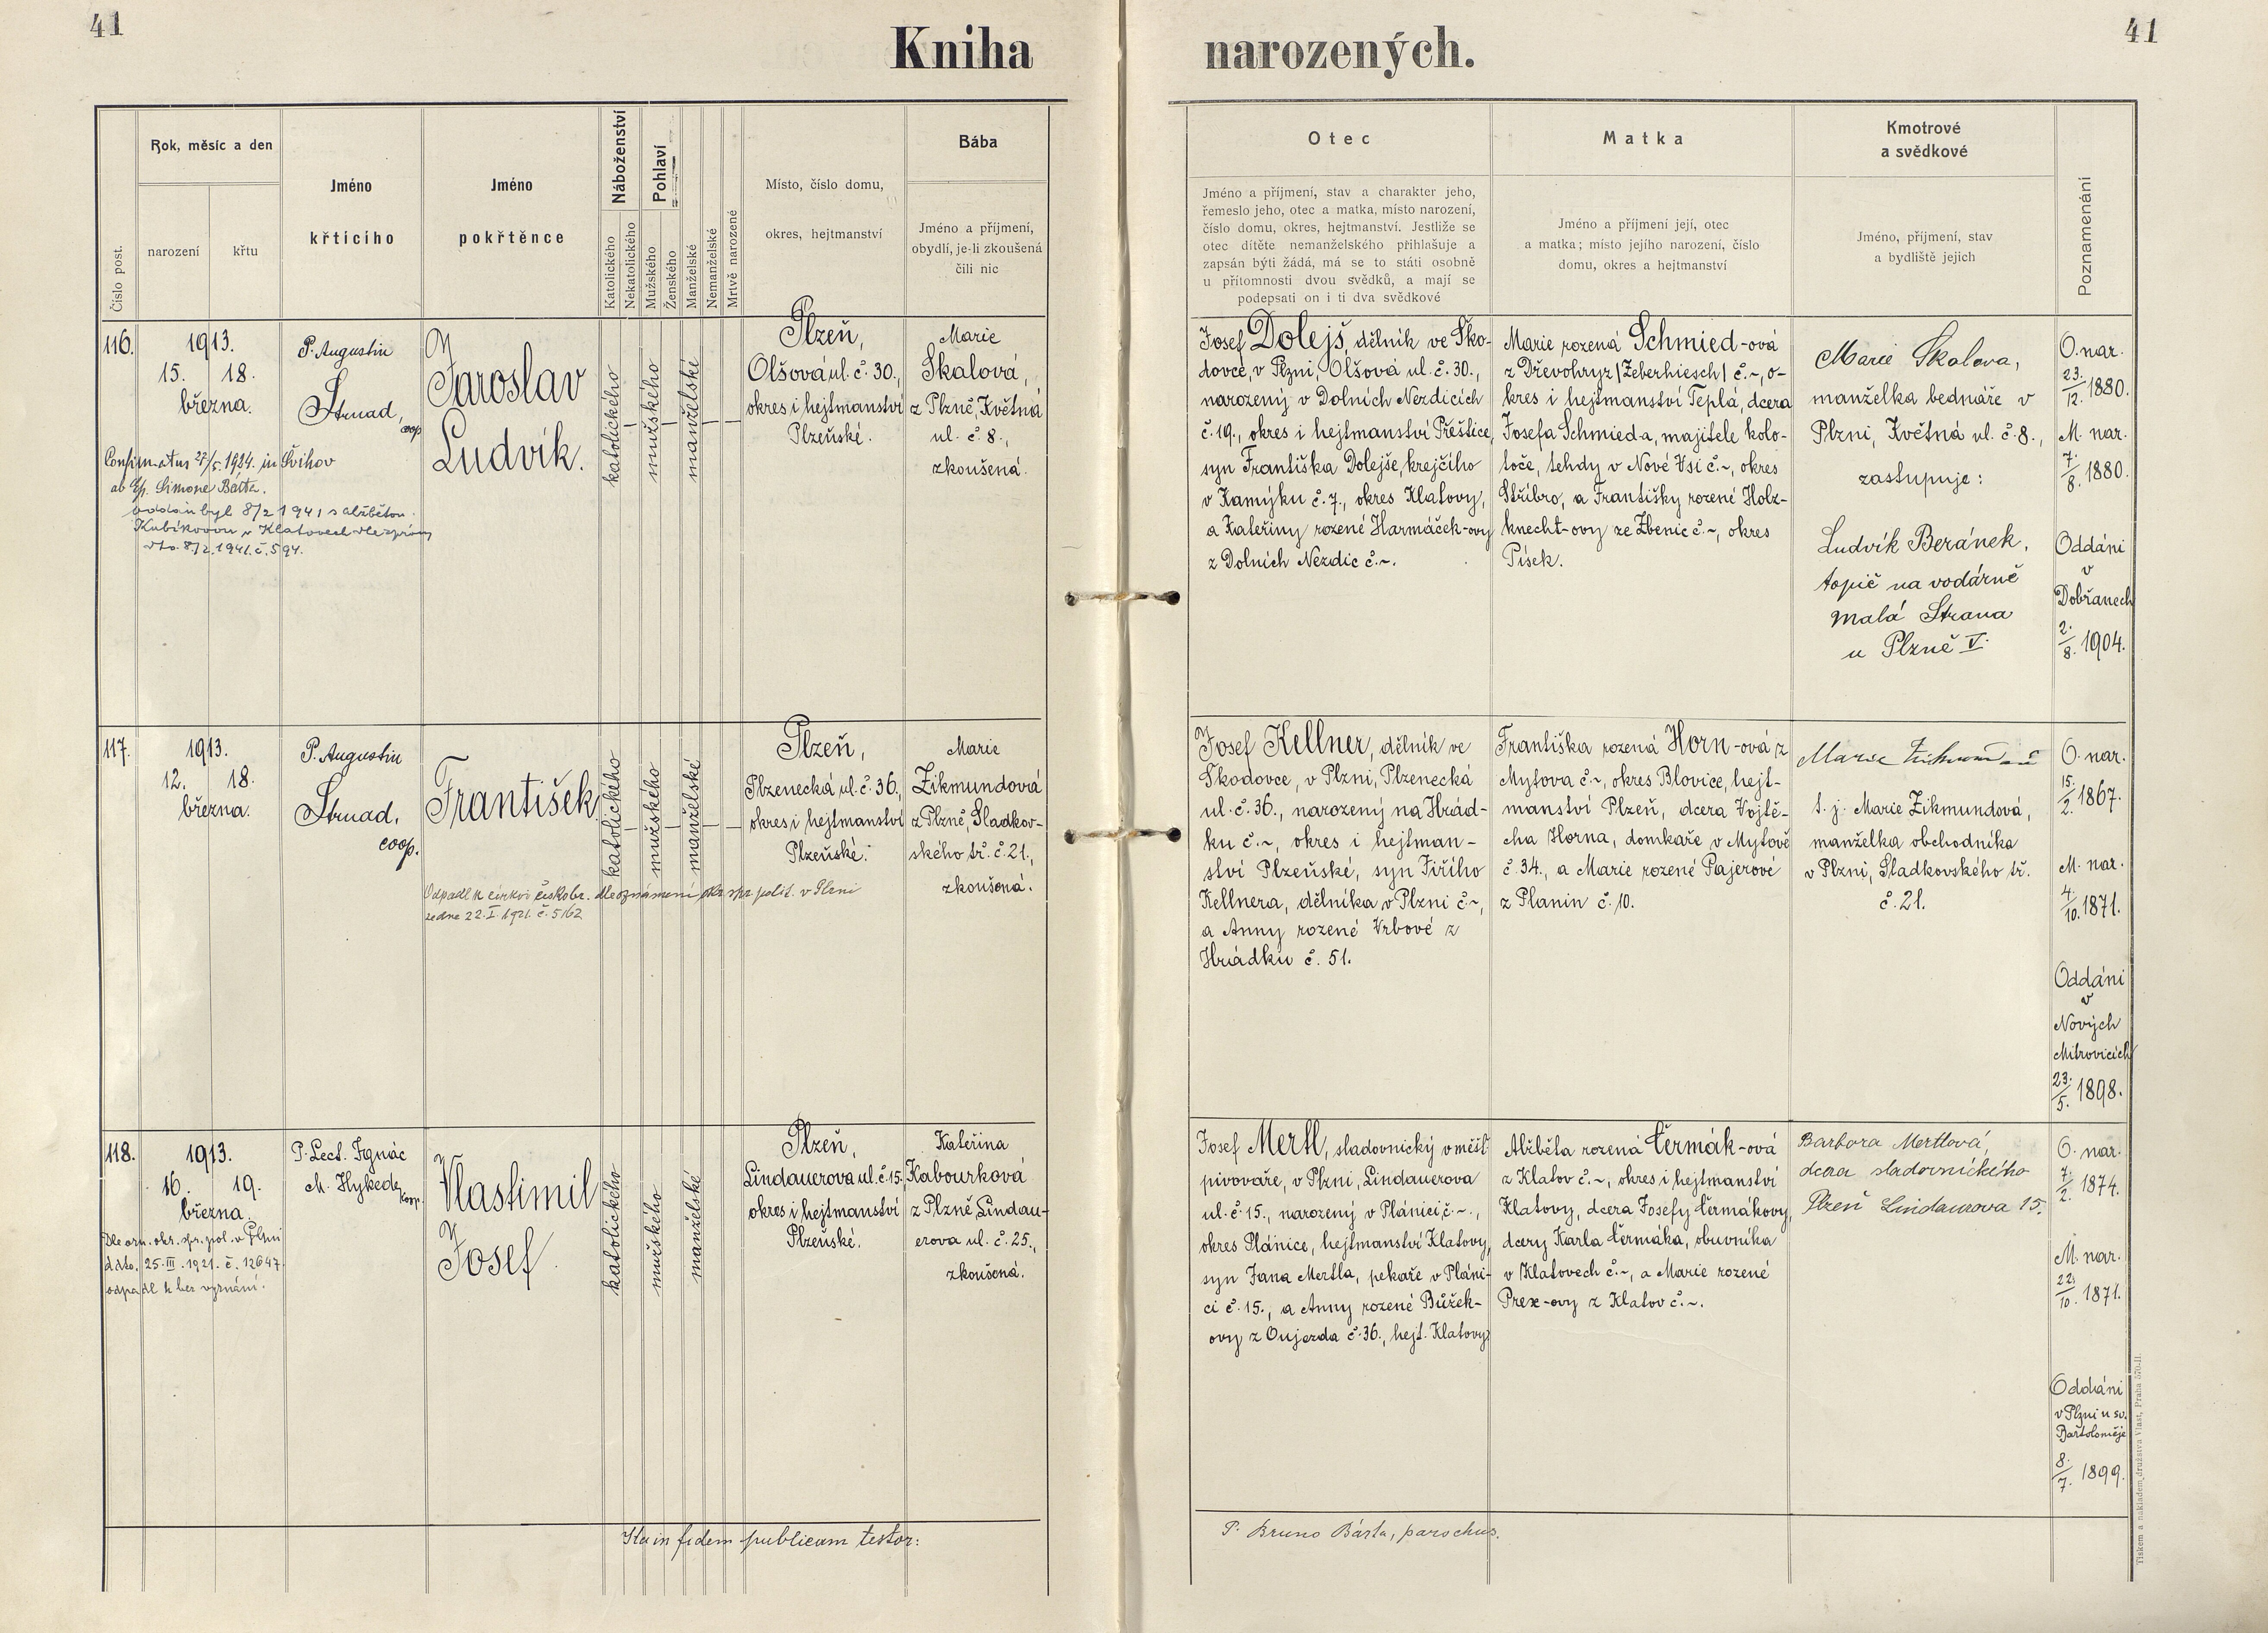 41
Kniha
narozených.
41
Číslo post.
Rok, měsíc a den
narození
křtu
Jméno
křtícího
Jméno
pokřtěnce
Náboženství
Katolického
Nekatolického
Pohlaví
Mužského
Ženského
Manželské
Nemanželské
Mrtvě narozené
Místo, číslo domu,
okres, hejtmanství
Bába
Jméno a příjmení,
obydlí, je-li zkoušená
čili nic
Otec
Jméno a příjmení, stav a charakter jeho,
řemeslo jeho, otec a matka, místo narození,
číslo domu, okres, hejtmanství. Jestliže se
otec dítěte nemanželského přihlašuje a
zapsán býti žádá, má se to státi osobně
u přítomnosti dvou svědků, a mají se
podepsati on i ti dva svědkové
Matka
Jméno a příjmení její, otec
a matka; místo jejího narození, číslo
domu, okres a hejtmanství
Kmotrové
a svědkové
Jméno, příjmení, stav
a bydliště jejich
Poznamenání
116.
1913.
15. 18.
března.
Confirmatus 27/5. 1924. in Švihov
ab Ep. Simone Bárta.
oddán byl 8/2 1941 s Alžbětou
Kubíkovou v Klatovech dle zprávy
8./2. 1941. č. 594.
P. Augustin
Strnad,
coop
Jaroslav
Ludvík.
katolického
mužského
manželské
Plzeň,
Olšová ul. č. 30.,
okres i hejtmanství
Plzeňské.
Marie
Skalová,
z Plzně, Květná
ul. č. 8.,
zkoušená.
Josef Dolejš, dělník ve Ško-
dovce, v Plzni, Olšová ul. č. 30.,
narozený v Dolních Nezdicích
č. 19., okres i hejtmanství Přeštice,
syn Františka Dolejše, krejčího
v Kamýku č. 7., okres Klatovy,
a Kateřiny rozené Harmáček-ovy
z Dolních Nezdic č. ~.
Marie rozená Schmied-ová
z Dřevohryz /Zeberhiesch/ č. ~, o-
kres i hejtmanství Teplá, dcera
Josefa Schmied-a, majitele kolo-
toče, tehdy v Nové Vsi č. ~, okres
Stříbro, a Františky rozené Holz-
knecht-ovy ze Zbenic č. ~, okres
Písek.
Marie Skalova,
manželka bednáře v
Plzni, Květná ul. č. 8.,
zastupuje:
Ludvík Beránek,
topič na vodárně
malá Strana
u Plzně V.
O. nar.
23./12. 1880.
M. nar.
7./8. 1880.
Oddáni
v
Dobřanech
2./8. 1904.
117.
1913.
12. 18.
března.
P. Augustin
Strnad,
coop.
František
Odpadl k církvi českobr. dle oznámení okr. spr. polit. v Plzni
ze dne 22. I. 1921. č. 5162
katolického
mužského
manželské
Plzeň,
Plzenecká ul. č. 36.,
okres i hejtmanství
Plzeňské.
Marie
Zikmundová
z Plzně, Sladkov-
ského tř. č. 21.,
zkoušená.
Josef Kellner, dělník ve
Škodovce, v Plzni, Plzenecká
ul. č. 36., narozený na Hrád-
ku č. ~, okres i hejtman-
ství Plzeňské, syn Jiřího
Kellnera, dělníka v Plzni č. ~,
a Anny rozené Vrbové z
Hrádku č. 51.
Františka rozená Horn-ová z
Mýtova č. ~, okres Blovice, hejt-
manství Plzeň, dcera Vojtě-
cha Horna, domkaře v Mýtově
č. 34., a Marie rozené Pajerové
z Planin č. 10.
Marie
t. j. Marie Zikmundová,
manželka obchodníka
v Plzni, Sladkovského tř.
č. 21.
O. nar.
15./2. 1867.
M. nar.
4./10. 1871.
Oddáni
v
Nových
Mitrovicích
23./5. 1898.
118.
1913.
16. 19.
března.
Dle ozn. okr. spr. pol. v Plzni
ddto. 25. III. 1921. č. 12647
odpadl k bez vyznání.
P. Lect. Ignác
M. Hykede,
koop.
Vlastimil
Josef.
katolického
mužského
manželské
Plzeň,
Lindauerova ul. č. 15.
okres i hejtmanství
Plzeňské.
Kateřina
Kabourková
z Plzně, Lindau-
erova ul. č. 25.,
zkoušená.
Josef Mertl, sladovnický v měšť.
pivováře, v Plzni, Lindauerova
ul. č. 15., narozený v Plánici č. ~.,
okres Plánice, hejtmanství Klatovy,
syn Jana Mertla, pekaře v Pláni-
ci č. 15., a Anny rozené Bůžek-
ovy z Oujezda č. 36., hejt. Klatovy
Alžběta rozená Čermák-ová
z Klatov č. ~, okres i hejtmanství
Klatovy, dcera Josefy Čermákovy,
dcery Karla Čermáka, obuvníka
v Klatovech č. ~, a Marie rozené
Prex-ovy z Klatov č. ~.
Barbora Mertlová,
dcera sladovnického
Plzeň Lindaurova 15.
O. nar.
7./2. 1874.
M. nar.
22./10. 1871.
Oddáni
v Plzni u sv.
Bartoloměje
8./7. 1899.
Ita in fidem publicam testor:
P. Bruno Bárta, parochus.
Tiskem a nakladem družstva Vlast, Praha 570-II.